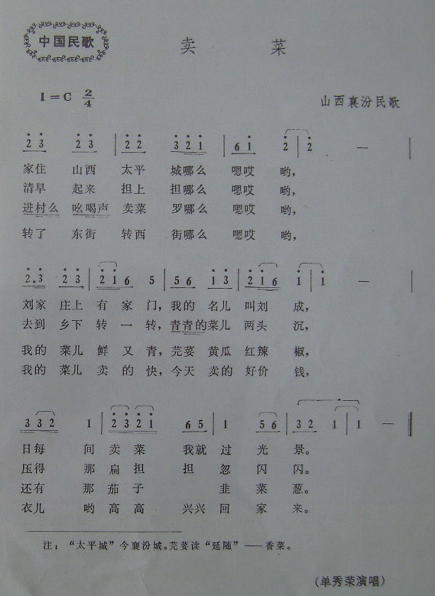 中国民歌
卖 菜
1=C 2/4
山西襄汾民歌
2 3 2 3 | 2 2 3 2 1 | 6 1 2 | 2 — |
家住 山西 太平 城哪么 嗯哎 哟，
清早 起来 担上 担哪么 嗯哎 哟，
进村么 吆喝声 卖菜 罗哪么 嗯哎 哟，
转了 东街 转西 街哪么 嗯哎 哟，
2. 3 2 3 | 2 1 6 5 | 5 5 1 2 | 2 1 6 1 | 1 — |
刘家 庄上 有 家 门，我的 名儿 叫刘 成，
去到 乡下 转 一 转，青青的 菜儿 两头 沉，
我的 菜儿 鲜 又 青，芫荽 黄瓜 红辣 椒，
我的 菜儿 卖 的 快，今天 卖的 好价 钱，
3 3 2 1 | 2 3 2 1 | 6 5 1 | 5 6 3 2 | 1 — ‖
日每 间 卖菜 我就 过 光 景。
压得 那 扁担 担 忽 闪闪。
还有 那 茄子 韭 菜 葱。
衣儿 哟 高高 兴兴 回 家 来。
注：“太平城”今襄汾城。芫荽读“延随”——香菜。
（单秀荣演唱）